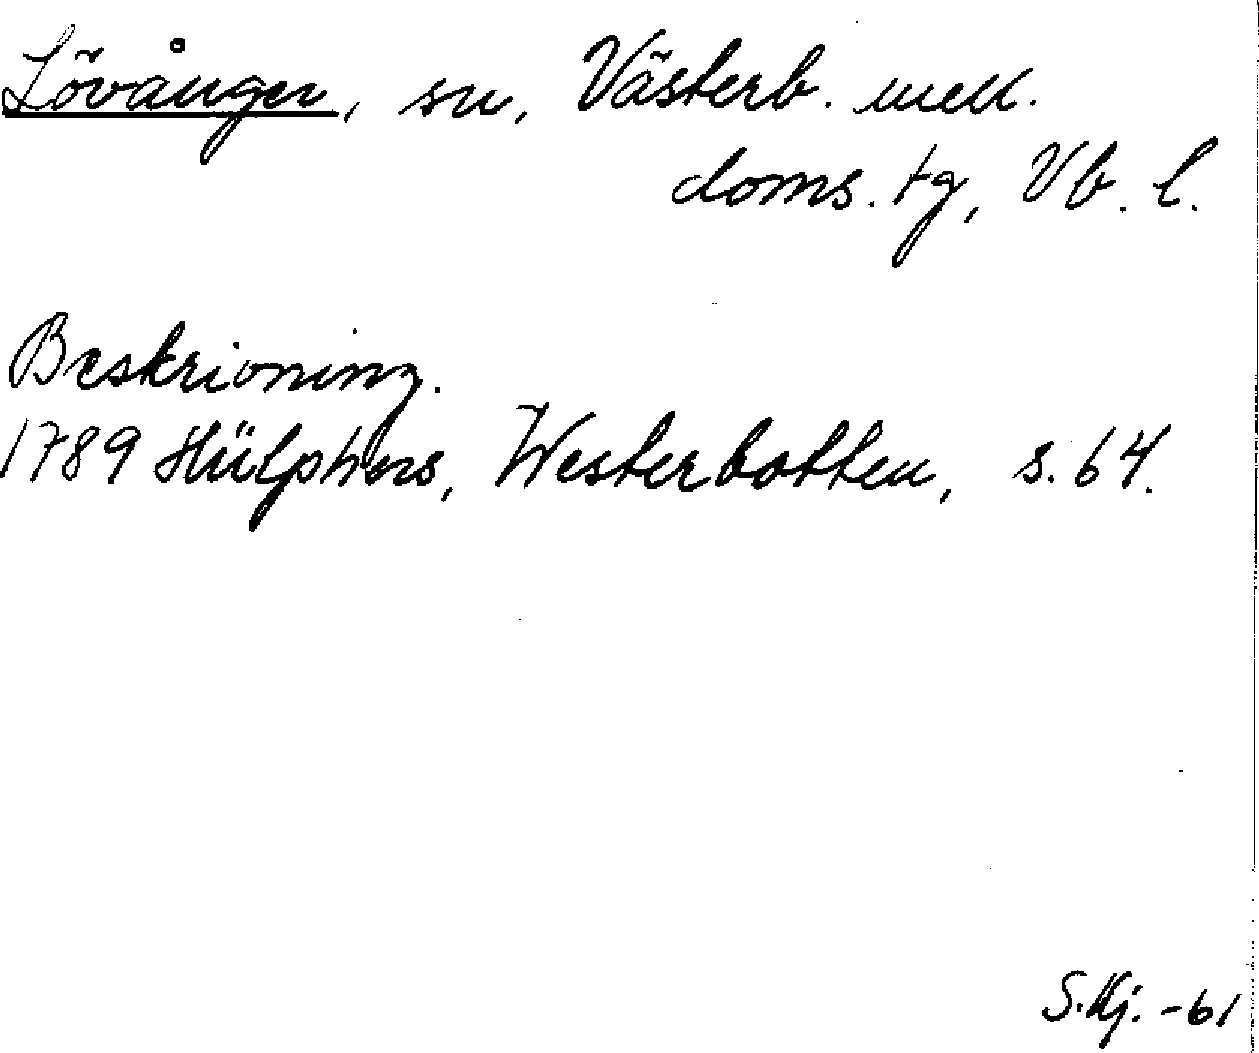 Lövånger, sn, Västerb. mell.
doms. tg, Vb. l.
Beskrivning.
1789 Hülphers, Westerbotten, s. 64.
S. Kj. -61